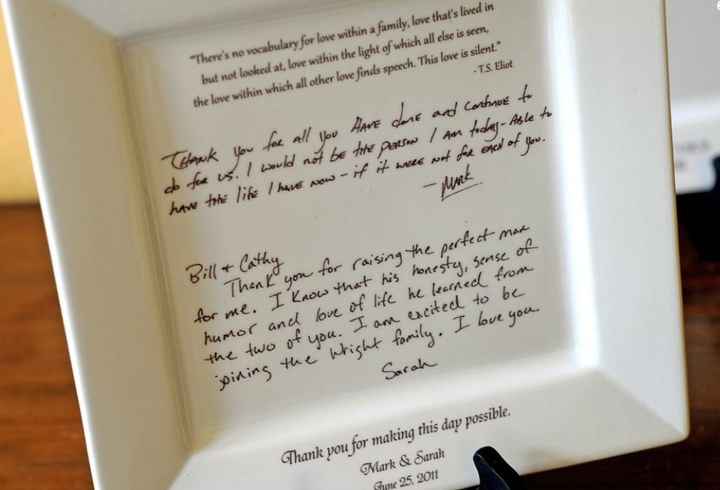 "There's no vocabulary for love within a family, love that's lived in
but not looked at, love within the light of which all else is seen,
the love within which all other love finds speech. This love is silent."
- T.S. Eliot
Thank you for all you have done and continue to
do for us. I would not be the person I am today - able to
have the life I have now - if it were not for each of you.
- Mark
Bill + Cathy
Thank you for raising the perfect man
for me. I know that his honesty, sense of
humor and love of life he learned from
the two of you. I am excited to be
joining the Wright family. I love you.
Sarah
Thank you for making this day possible.
Mark & Sarah
June 25, 2011